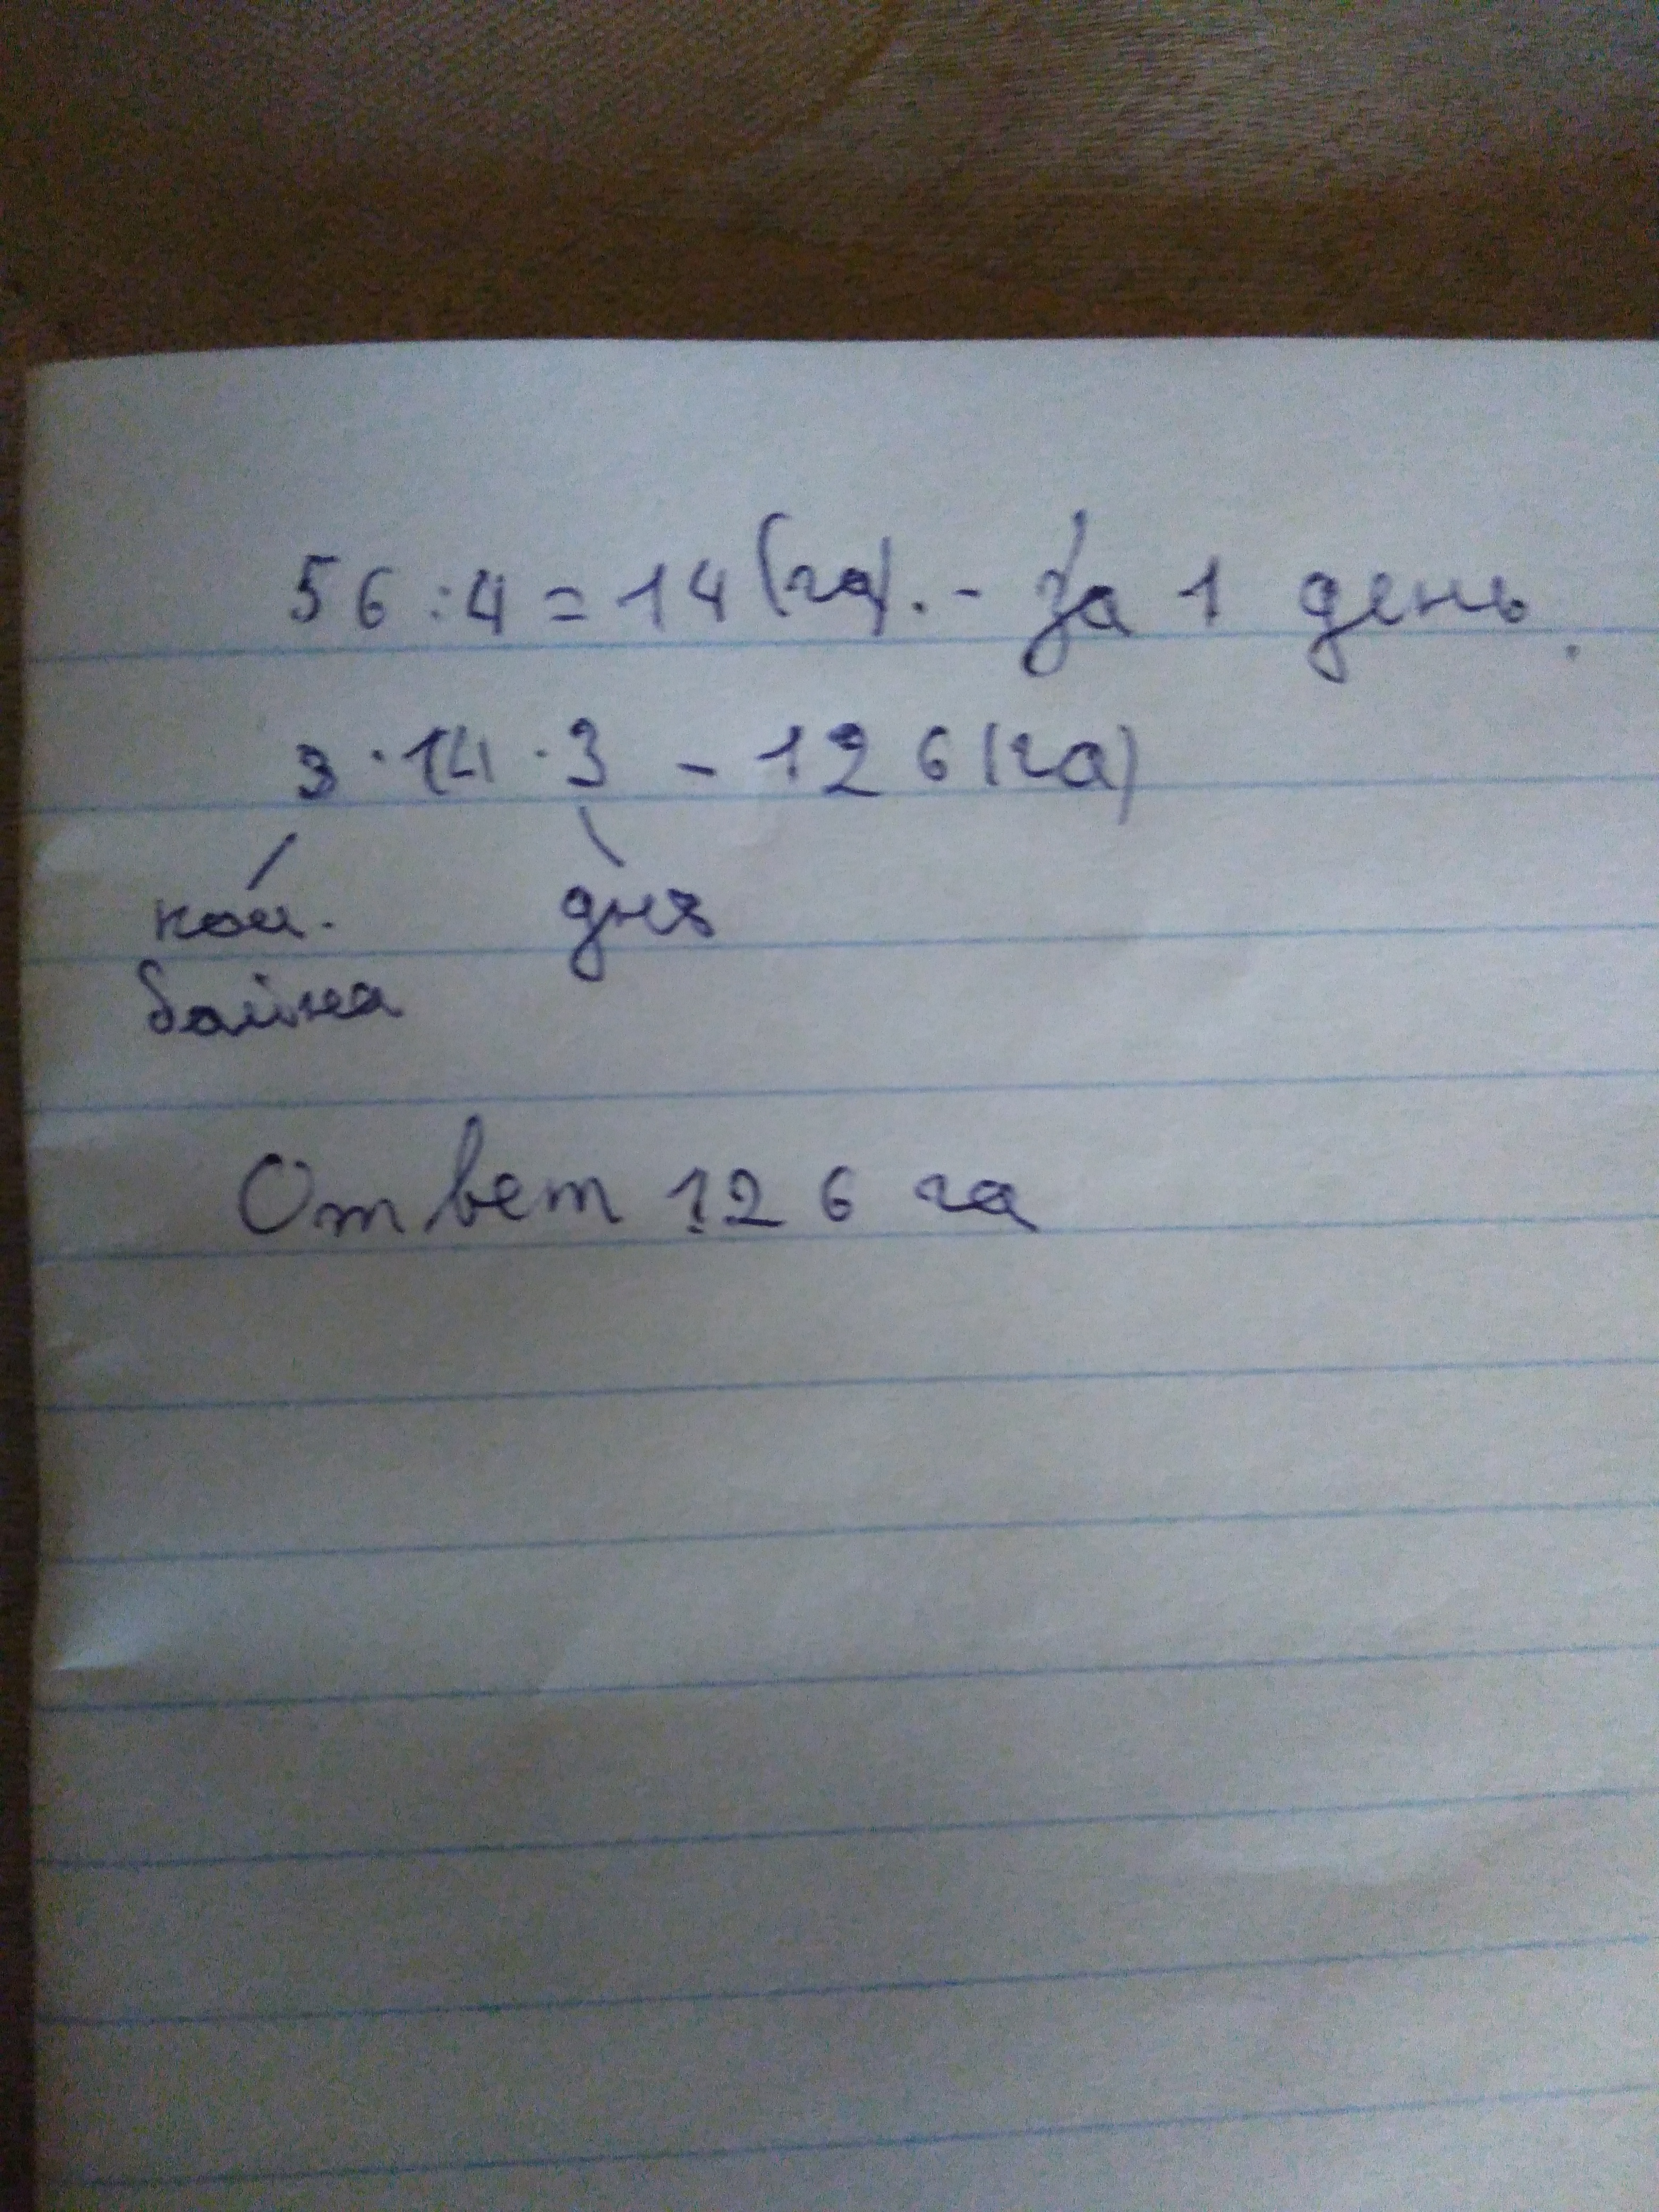 56:4=14(га).- за 1 день.
3·14·3 - 126(га)
ком. дня
байна
Ответ 126 га